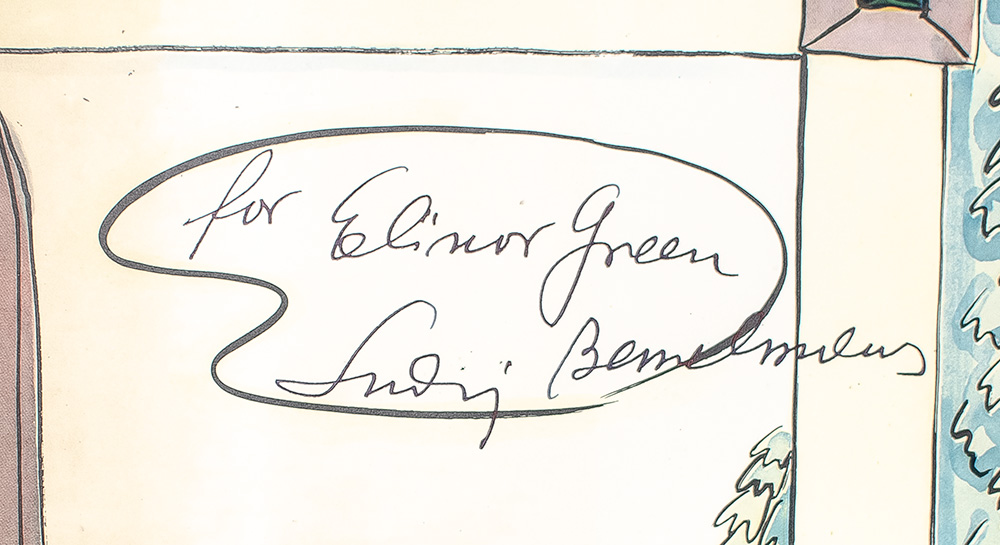 for Elinor Green
Ludwig Bemelmans